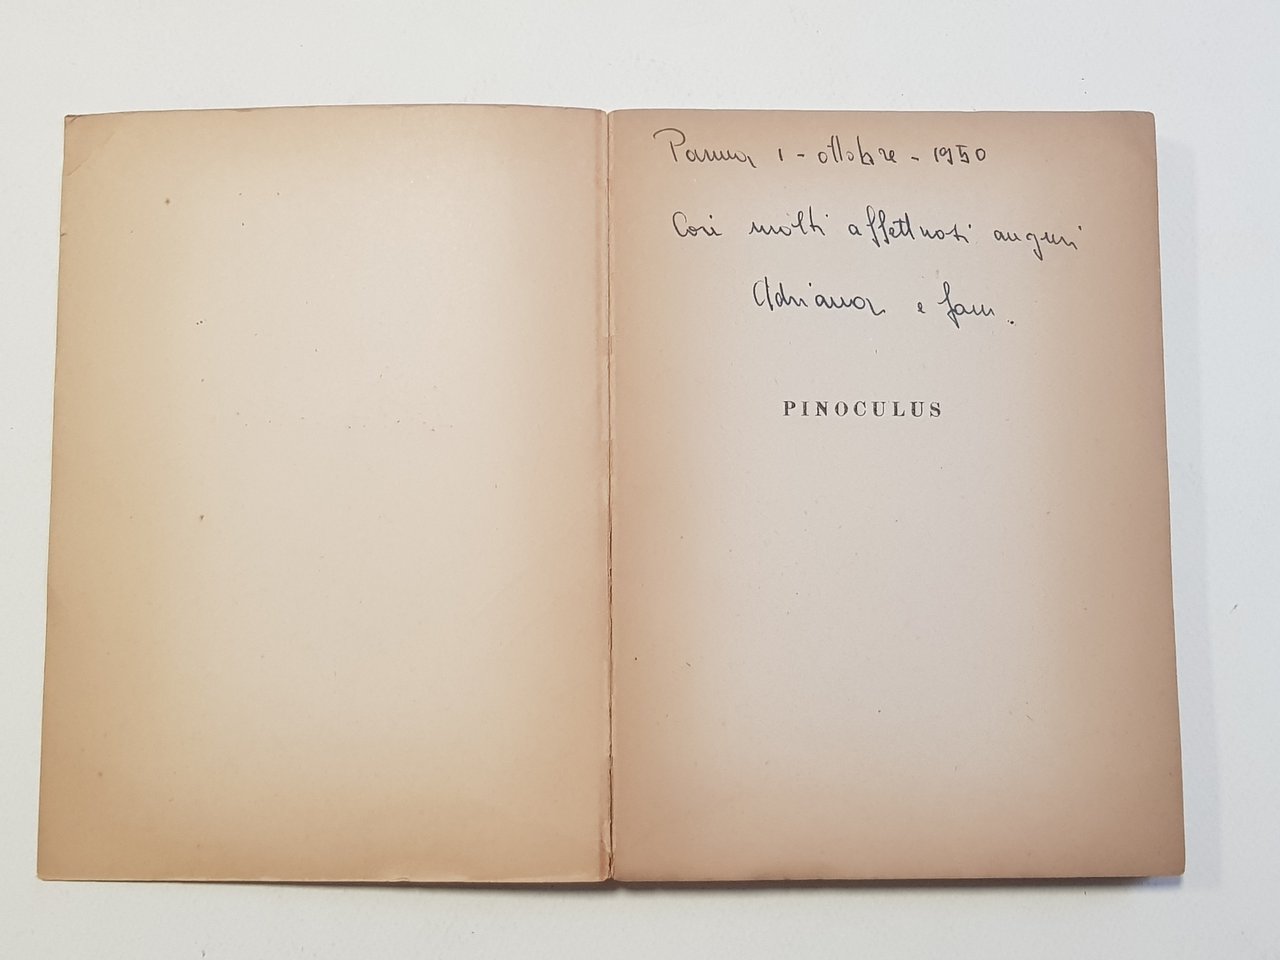 Parma 1 - ottobre - 1950
Con molti affettuosi auguri
Adriana e fam.
PINOCULUS